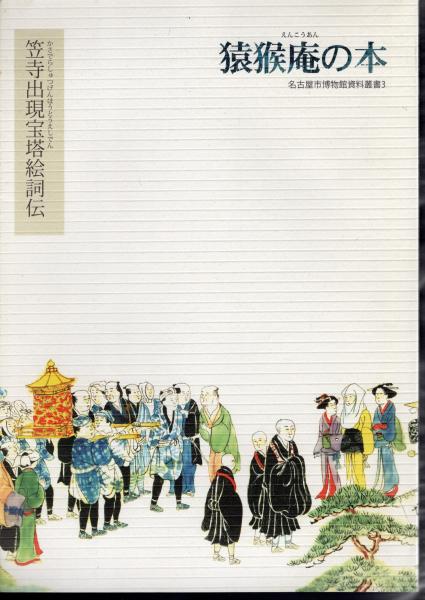 えんこうあん
猿猴庵の本
名古屋市博物館資料叢書3
かさでらしゅつげんほうとうえしでん
笠寺出現宝塔絵詞伝